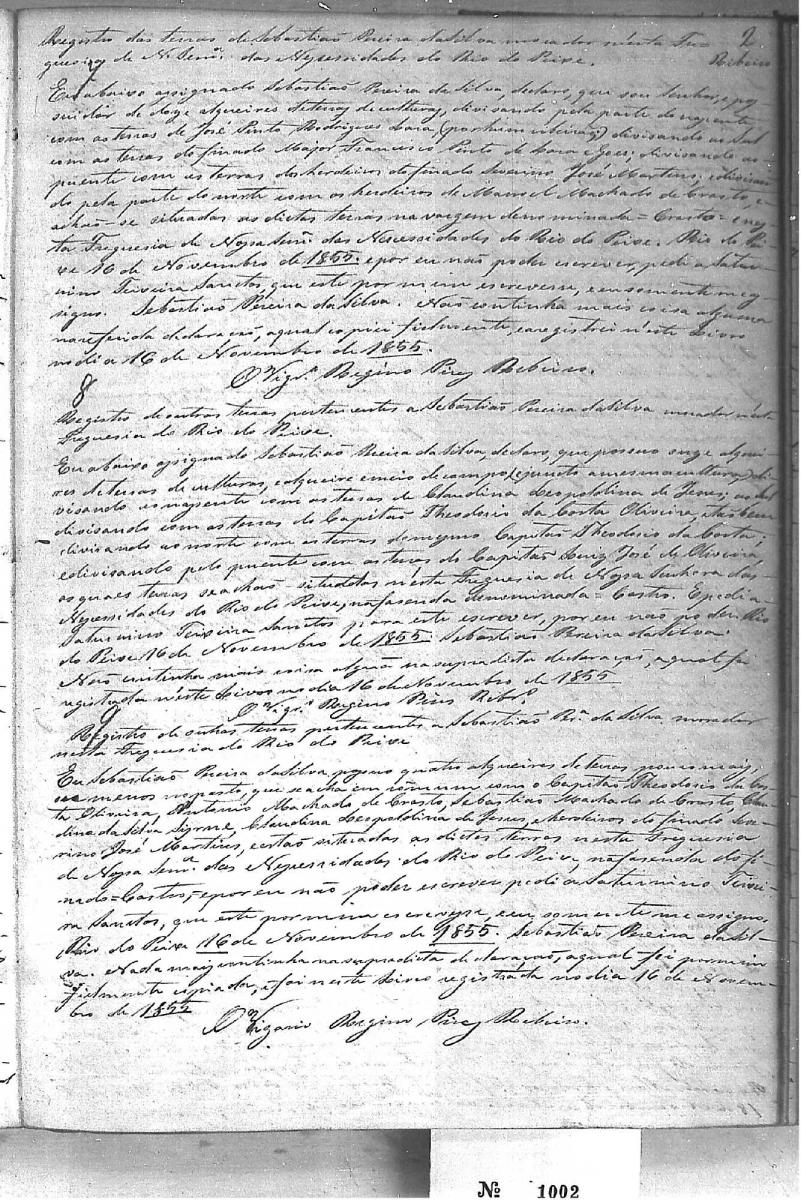 Registro das terras de Sebastião Pereira da Silva morador nésta Fre- 2
guesia de N. Senrª das Necessidades do Rio do Peixe. Ribeiro
7
Eu abaixo assignado Sebastião Pereira da Silva, declaro, que sou senhor, e pos
suidor de doze alqueires de terras de culturas, divisando pela parte do nascente
com as terras de José Pinto Rodrigues Lara (por hum ) divisando ao Sul
com as terras do finado Major Francisco Pinto de Lara e Goes; divisando ao
puente com as terras dos herdeiros do finado Severino José Martins; e divisan
do pela parte do norte com os herdeiros de Manoel Machado de Crasto, e
achão-se situadas as dictas terras na vargem denominada = Crasto = e nes
ta Freguesia de Nossa Senrª das Necessidades do Rio do Peixe. Rio do Pei
xe 16 de Novembro de 1855. e por eu não poder escrever, pedi a Satur-
nino Teixeira Sanctos, que este por mim escrevesse, e eu somente me as
signo. Sebastião Pereira da Silva. Não continha mais coisa alguma
na referida declaração, a qual copiei fielmente, e a registrei n'éste Livro
no dia 16 de Novembro de 1855.
O Vigrº Regino Pires Ribeiro.
8
Registro de outras terras pertencentes a Sebastião Pereira da Silva morador nésta
Freguesia do Rio do Peixe.
Eu abaixo assignado Sebastião Pereira da Silva, declaro, que possuo onze alquei-
res de terras de culturas, e alqueire e meio de campo, (e junto a mesma cultura) di-
visando ao nascente com as terras de Claudina Leopoldina de Jesus; ao Sul
divisando com as terras do Capitão Theodosio da Costa Oliveira, e tão bem
divisando ao norte com as terras do mesmo Capitão Theodosio da Costa;
e divisando pelo puente com as terras do Capitão Luiz José de Oliveira
as quaes terras se achão situadas n'ésta Freguesia de Nossa Senhora das
Necessidades do Rio do Peixe, na fasenda denominada = Castro. E pedi a
Saturnino Teixeira Sanctos para este escrever, por eu não poder. Rio
do Peixe 16 de Novembro de 1855 Sebastião Pereira da Silva.
Não continha mais coisa algũa na supradicta declaração, a qual foi
registrada n'éste Livro no dia 16 de Novembro de 1855
O Vigrº Regino Pires Ribrº
9
Registro de outras terras pertencentes a Sebastião Perª da Silva morador
nesta Freguesia do Rio do Peixe
Eu Sebastião Pereira da Silva, possuo quatro alqueires de terras pouco mais,
ou menos no pasto, que se acha em commum com o Capitão Theodosio da Cos-
ta Oliveira, Antonio Machado de Crasto, Sebastião Machado de Crasto, Clau
dina da Silva Leme, Claudina Leopoldina de Jesus, e herdeiros do finado Seve-
rino José Martins, e estão situadas as dictas terras nesta Freguesia
de Nossa Senrª das Necessidades do Rio do Peixe, na fasenda do fi-
nado = Castro, = e por eu não poder escrever pedi a Saturnino Teixei-
ra Sanctos, que este por mim escrevesse, e eu somente me assigno.
Rio do Peixe 16 de Novembro de 1855. Sebastião Pereira da Sil-
va. Nada mais continha na supradicta declaração, a qual foi por mim
fielmente copiada, e foi neste Livro registrada no dia 16 de Novem-
bro de 1855
O Vigario Regino Pires Ribeiro.
Nº 1002